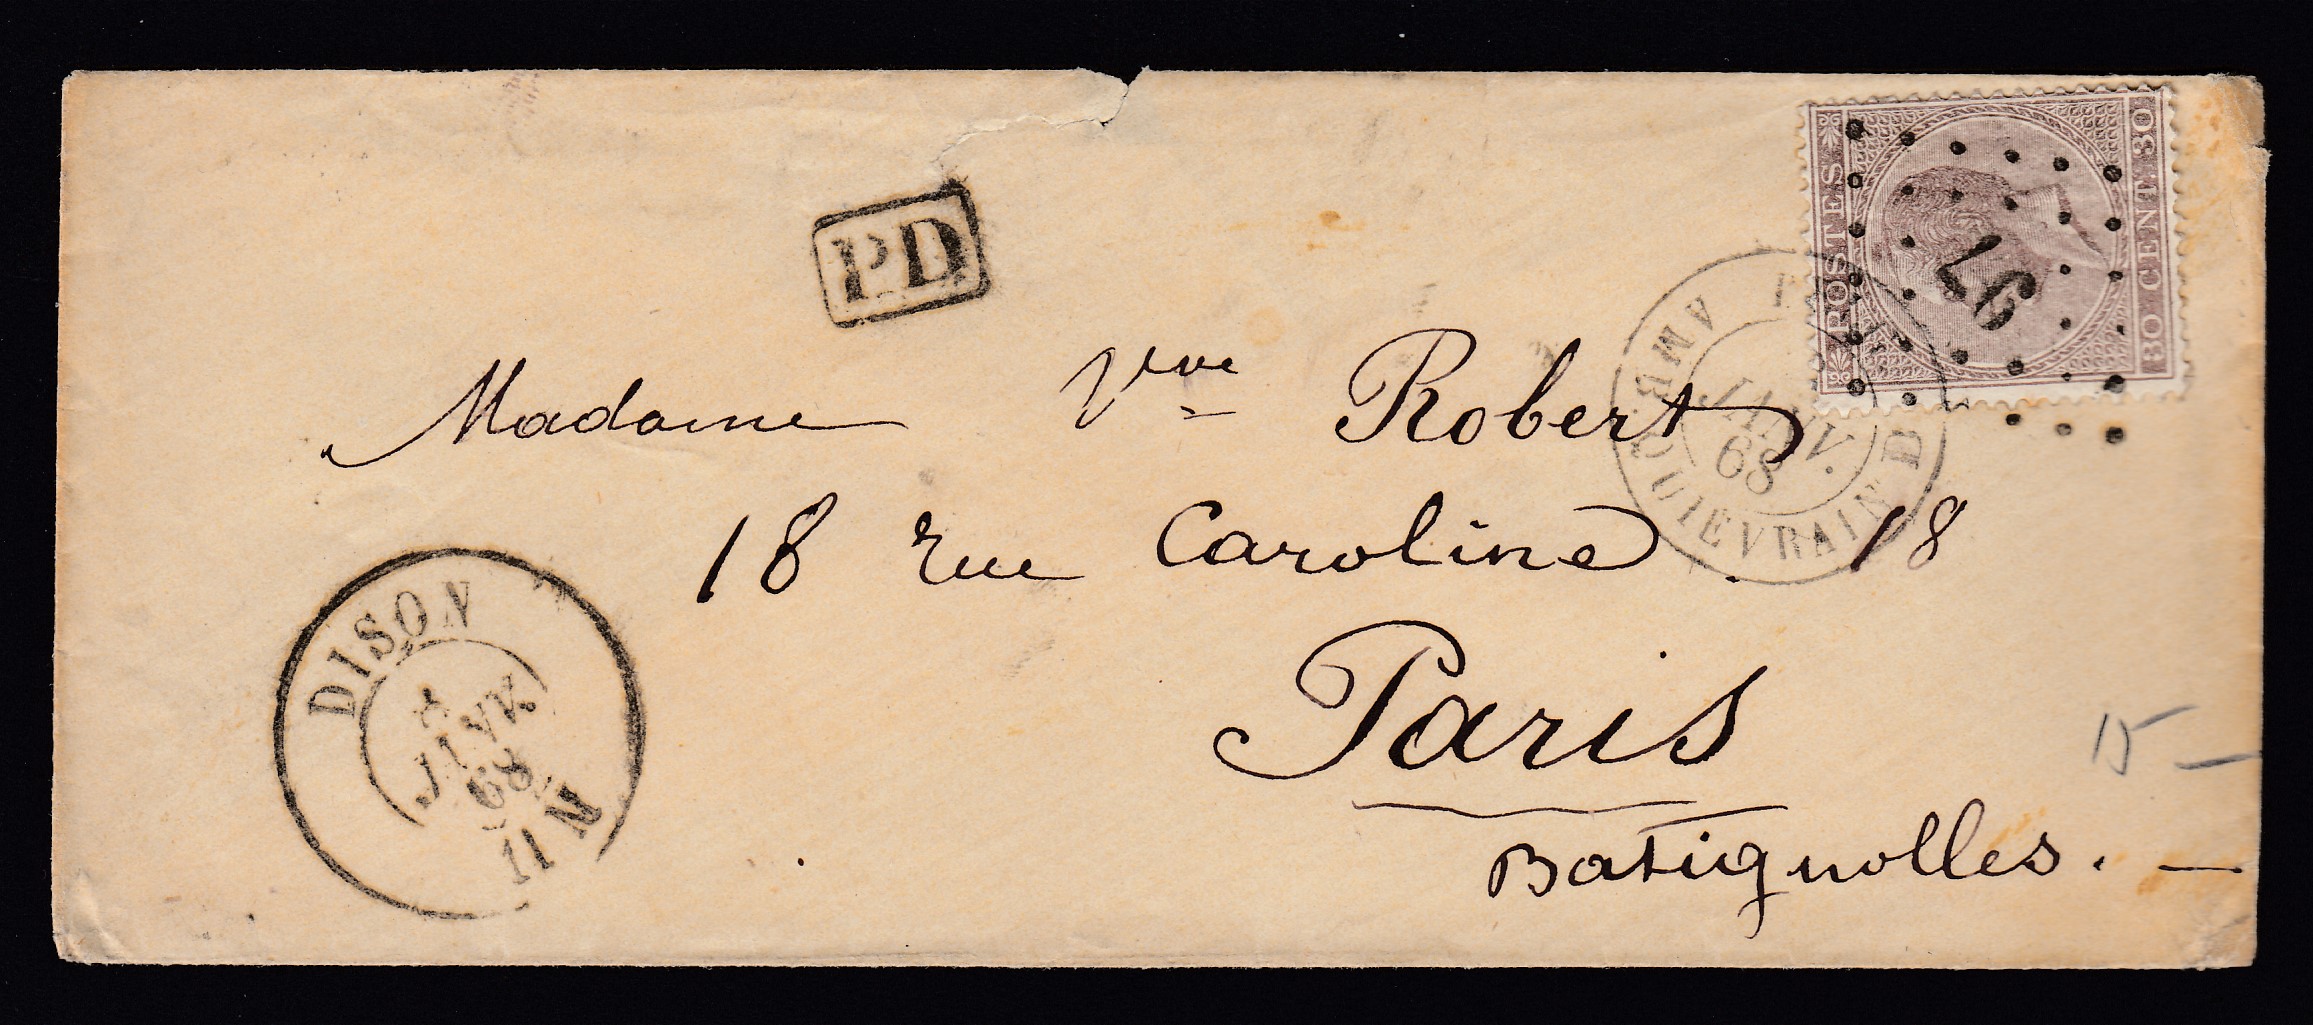 POSTES
30 CENT. 30
97
PD
Madame Vve Robert
18 rue Caroline. 18
Paris
Batignolles.
15 -
DISON
8
JANV
68
11 N
AMB. QUIEVRAIN D
JANV.
68